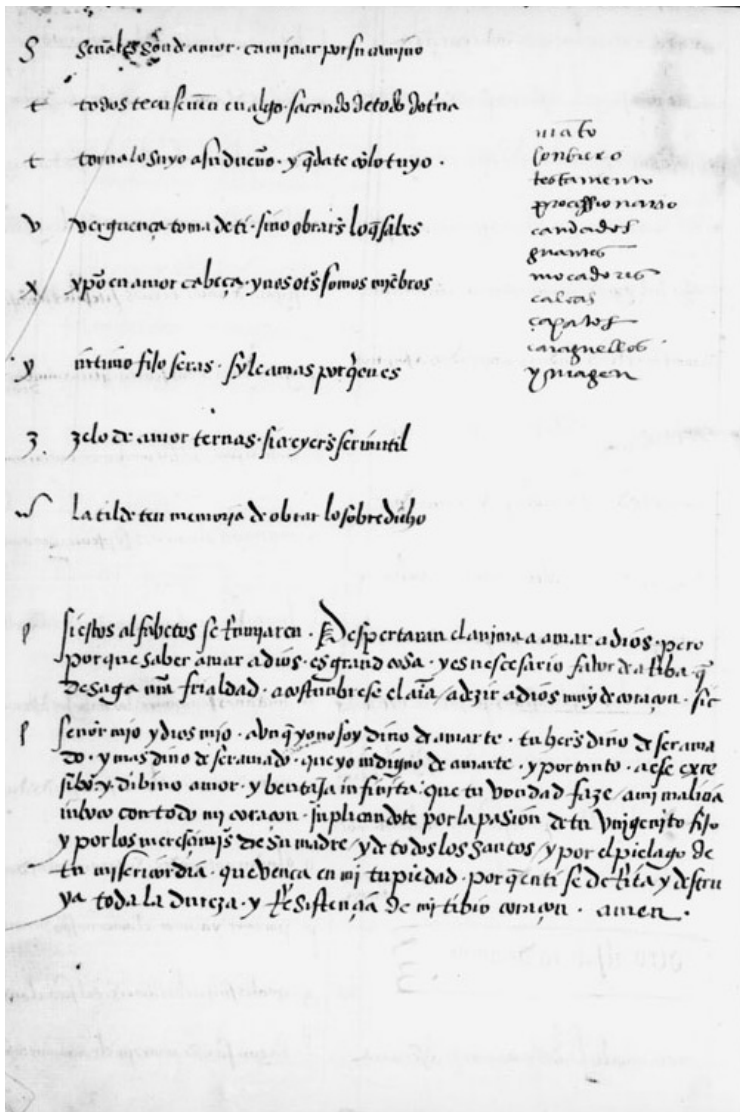 S señales son de amor · caminar por su camino
t todos te enseñen en algo · sacando de todo dotña
t torna lo suyo a su dueño · y q̃date cõ lo tuyo ·
v verguença toma de ti · sino obrar̃s lo q̃ sabes
x xp̃o en amor cabeça · y nosot̃s somos miẽbros
y intimo fijo seras · sy le amas por q̃en es
z zelo de amor ternas · si creyer̃s ser inutil
la tilde ten memoria de obrar lo sobre dicho
mãto
sonbrero
testamento
processionario
candados
guantes
mocadores
calças
çapatos
caraguelles
ymagen
si estos alfabetos se Rumiaren · Despertaran el anima a amar a dios · pero
porque saber amar a dios · es grand cosa · y es nescesario fabor de aRiba q̃
desaga nr̃a frialdad · acostunbrese el aĩa / a dezir a dios muy de coraçon · sic
señor mio y dios mio · avn q̃ yo no soy dino de amarte · tu her̃s dino de ser ama
do · y mas dino de ser amado · que yo indigno de amarte · y por tanto · a ese exce
sibo · y dibino amor · y bentaja infinita · que tu bondad faze / a mi malicia
inboco con todo mi coraçon · suplicandote por la pasion de tu vnigenito fijo
y por los de su madre / y de todos los santos / y por el pielago de
tu misericordia · que vença en mi tu piedad · por q̃ en ti se deRita y destru
ya toda la dureza · y Resistençia de mi tibio coraçon · amen ·